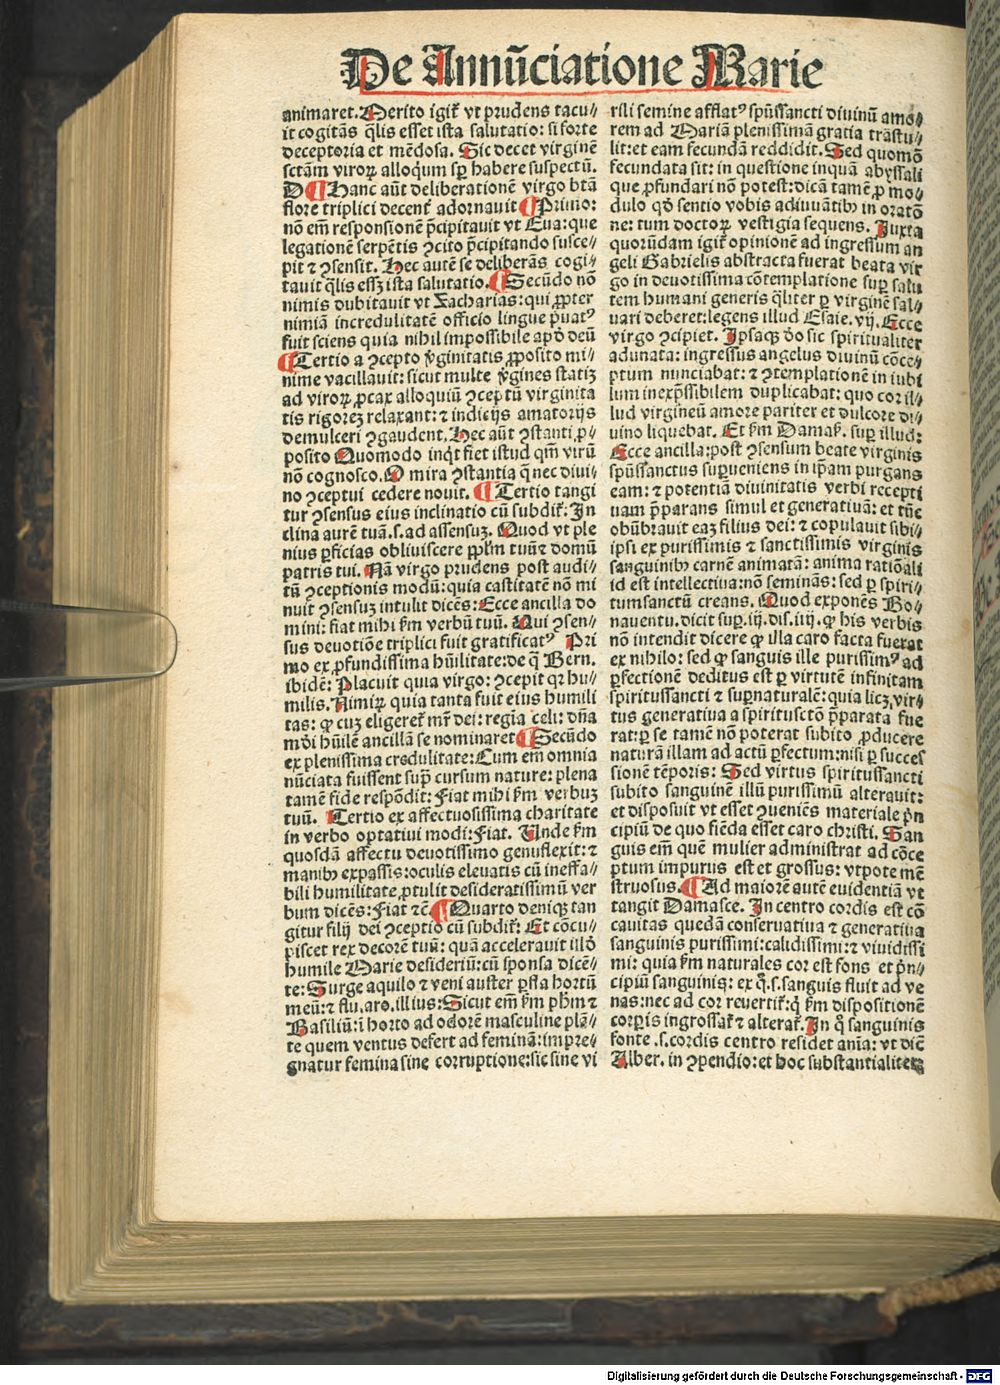 De Annūciatione Marie
animaret. Merito igit̄ vt prudens tacu⸗
it cogitās q̄lis esset ista salutatio: si forte
deceptoria et mēdosa. Sic decet virginē
sctām viroꝝ alloqūm sꝑ habere suspectū.
D ¶ Hanc aūt deliberationē virgo btā
flore triplici decent̄ adornauit ¶ Primo:
nō em̄ responsionē p̄cipitauit vt Eua: que
legationē serpētis ꝯcito p̄cipitando susce⸗
pit ⁊ ꝯsensit. Hec autē se deliberās cogi⸗
tauit q̄lis essꝫ ista salutatio. ¶ Secūdo nō
nimis dubitauit vt Zacharias: qui ꝓpter
nimiā incredulitatē officio lingue p̄uatꝰ
fuit sciens quia nihil impossibile apd̄ deū
¶ Tertio a ꝯcepto v̄ginitatis ꝓposito mi⸗
nime vacillauit: sicut multe v̄gines statiꝫ
ad viroꝝ ꝓcax alloquiū ꝯceptū virginita
tis rigoreꝫ relaxant: ⁊ indicijs amatorijs
demulceri ꝯgaudent. Hec aūt ꝯstanti ꝓ⸗
posito Quomodo inq̄t fiet istud qm̄ virū
nō cognosco. O mira ꝯstantia q̄ nec diui⸗
no ꝯceptui cedere nouit. ¶ Tertio tangi
tur ꝯsensus eius inclinatio cū subdit̄: In
clina aurē tuā .s. ad assensuꝫ. Quod vt ple
nius ꝑficias obliuiscere pp̄lm̄ tuū ⁊ domū
patris tui. Nā virgo prudens post audi⸗
tū ꝯceptionis modū: quia castitatē nō mi
nuit ꝯsensuꝫ intulit dicēs: Ecce ancilla do
mini: fiat mihi ẜm verbū tuū. Qui ꝯsen⸗
sus deuotiōe triplici fuit gratificatꝰ Pri
mo ex ꝓfundissima hūilitate: de q̄ Bern.
ibidē: Placuit quia virgo: ꝯcepit qꝛ hu⸗
milis. Nimiꝝ quia tanta fuit eius humili
tas: ꝙ cuꝫ eligeret̄ mr̄ dei: regia celi: dn̄a
mūdi hūilē ancillā se nominaret ¶ Secūdo
ex plenissima credulitate: Cum em̄ omnia
nūciata fuissent supͣ cursum nature: plena
tamē fide respōdit: Fiat mihi ẜm verbuꝫ
tuū. Tertio ex affectuosissima charitate
in verbo optatiui modi: Fiat. Unde ẜm
quosdā affectu deuotissimo genuflexit: ⁊
manibꝰ expassis: oculis eleuatis cū ineffa⸗
bili humilitate ꝓtulit desideratissimū ver
bum dicēs: Fiat ⁊cē. ¶ Quarto deniqꝫ tan
gitur filij dei ꝯceptio cū subdit̄: Et cōcu⸗
piscet rex decorē tuū: quā accelerauit illō
humile Marie desideriū: cū sponsa dicē⸗
te: Surge aquilo ⁊ veni auster ꝑfla hortū
meū: ⁊ flu. aro. illius: Sicut em̄ ẜm ph̄m ⁊
Basiliū: ī horto ad odorē masculine plā⸗
te quem ventus defert ad feminā: impre⸗
gnatur femina sine corruptione: sic sine vi
rili semine afflatꝰ spūssancti diuinū amo⸗
rem ad Mariā plenissimā gratia trāstu⸗
lit: et eam fecundā reddidit. Sed quomō
fecundata sit: in questione inquā abyssali
que ꝓfundari nō potest: dicā tamē ꝓ mo⸗
dulo qd̄ sentio vobis adiuuātibꝰ in oratō
ne: tum doctoꝝ vestigia sequens. Juxta
quorūdam igit̄ opinionē ad ingressum an
geli Gabrielis abstracta fuerat beata vir
go in deuotissima cōtemplatione suꝑ salu
tem humani generis q̄liter ꝑ virginē sal⸗
uari deberet: legens illud Esaie. vij. Ecce
virgo ꝯcipiet. Ipsaqꝫ v̄o sic spiritualiter
adunata: ingressus angelus diuinū cōce⸗
ptum nunciabat: ⁊ ꝯtemplationē in iubi
lum inexp̄ssibilem duplicabat: quo cor il⸗
lud virgineū amore pariter et dulcore di⸗
uino liquebat. Et ẜm Damaẜ. suꝑ illud:
Ecce ancilla: post ꝯsensum beate virginis
spūssanctus suꝑueniens in ip̄am purgans
eam: ⁊ potentiā diuinitatis verbi recepti
uam p̄parans simul et generatiuā: et tūc
obūbrauit eaꝫ filius dei: ⁊ copulauit sibi⸗
ipsi ex purissimis ⁊ sanctissimis virginis
sanguinibꝰ carnē animatā: anima ratiōali
id est intellectiua: nō seminās: sed ꝑ spiri⸗
tumsanctū creans. Quod exponēs Bo⸗
nauentu. dicit suꝑ .iij. dis. iiij. ꝙ his verbis
nō intendit dicere ꝙ illa caro facta fuerat
ex nihilo: sed ꝙ sanguis ille purissimꝰ ad
ꝑfectionē deditus est ꝑ virtutē infinitam
spiritussancti ⁊ suꝑnaturalē: quia licꝫ vir⸗
tus generatiua a spiritusctō p̄parata fue
rat: ꝑ se tamē nō poterat subito ꝓducere
naturā illam ad actū ꝑfectum: nisi ꝑ succes
sionē tēporis: Sed virtus spiritussancti
subito sanguinē illū purissimū alterauit:
et disposuit vt esset ꝯueniēs materiale p̄n
cipiū de quo fiēda esset caro christi. San
guis em̄ quē mulier administrat ad cōce
ptum impurus est et grossus: vtpote mē
struosus. ¶ Ad maiorē autē euidentiā vt
tangit Damasce. In centro cordis est cō
cauitas quedā conseruatiua ⁊ generatiua
sanguinis purissimi: calidissimi: ⁊ viuidissi
mi: quia ẜm naturales cor est fons et p̄n⸗
cipiū sanguinis: ex q̊ .s. sanguis fluit ad ve
nas: nec ad cor reuertit̄: q̄ ẜm dispositionē
corꝑis ingrossat̄ ⁊ alterat̄. In q̊ sanguinis
fonte .s. cordis centro residet aīa: vt dicē
Alber. in ꝯpendio: et hoc substantialiter
Digitalisierung gefördert durch die Deutsche Forschungsgemeinschaft - DFG